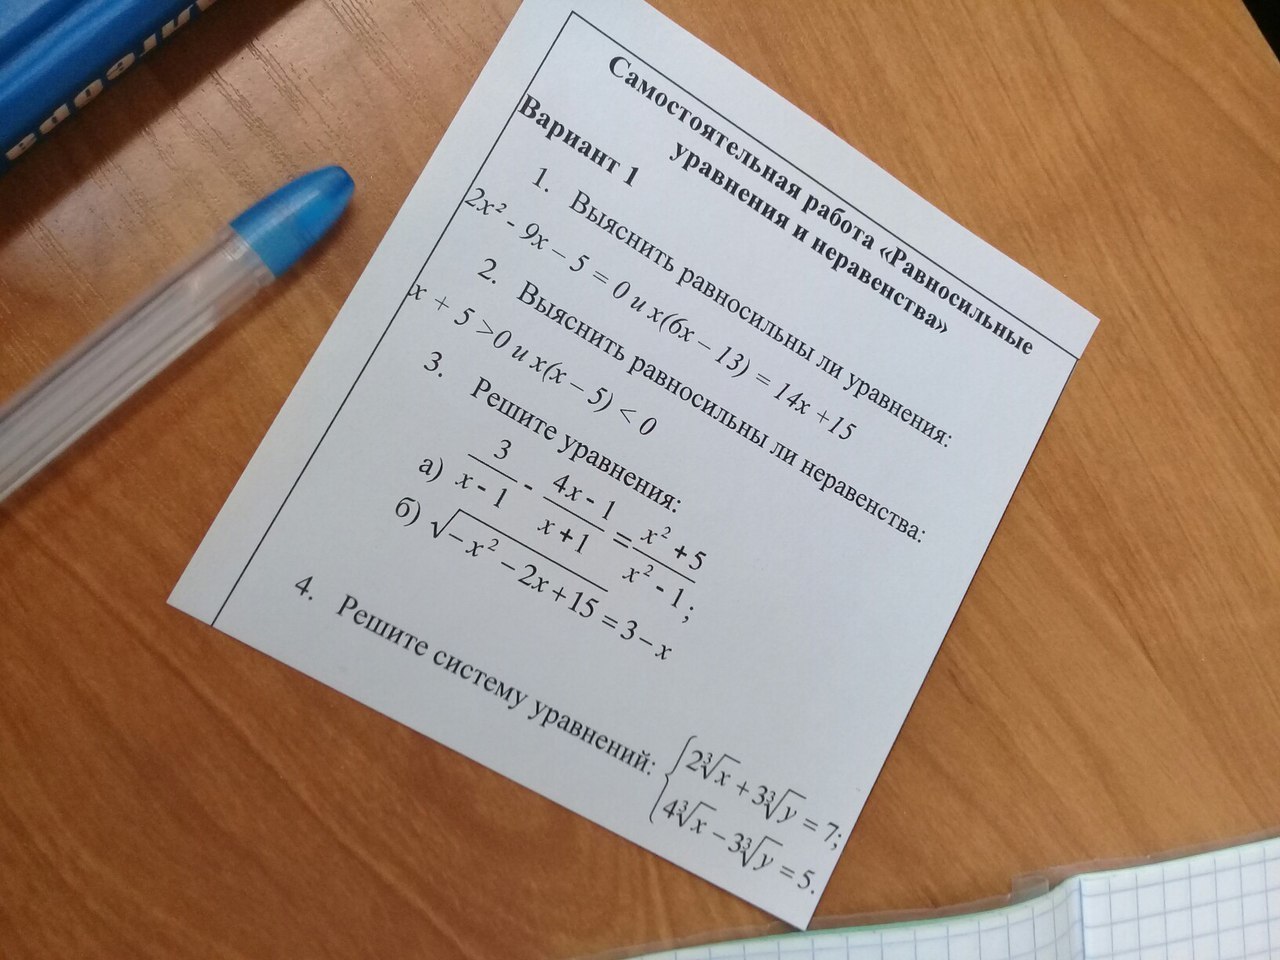 Самостоятельная работа «Равносильные
уравнения и неравенства»
Вариант 1
1. Выяснить равносильны ли уравнения:
2x² - 9x – 5 = 0 и x(6x – 13) = 14x +15
2. Выяснить равносильны ли неравенства:
x + 5 >0 и x(x – 5) < 0
3. Решите уравнения:
а) 3/(x - 1) - (4x - 1)/(x + 1) = (x² + 5)/(x² - 1);
б) √(– x² – 2x + 15) = 3 – x
4. Решите систему уравнений: { 2∛x + 3∛y = 7;
4∛x – 3∛y = 5.